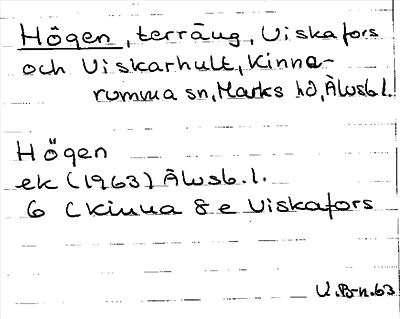 Högen, terräng, Viskafors
och Viskarhult, Kinna-
rumma sn, Marks hd, Älvsb.l.
Högen
ek (1963) Älvsb.l.
6 C Kinna 8 e Viskafors
U.B-n.63